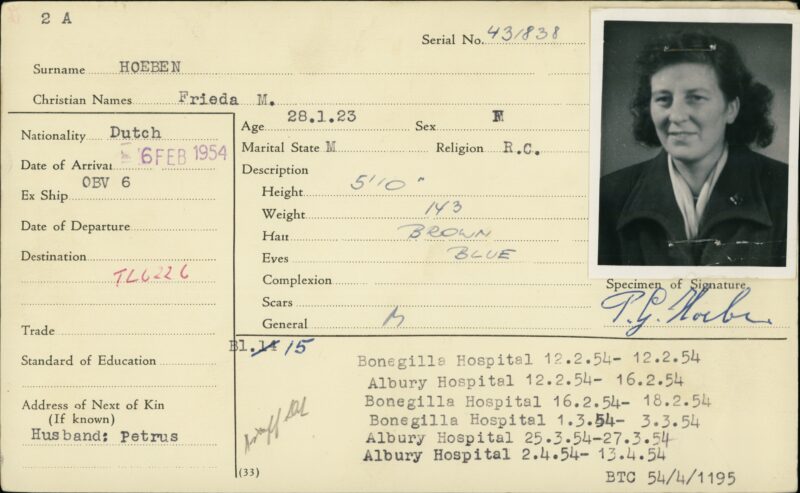 2 A
Serial No. 431838
Surname HOEBEN
Christian Names Frieda M.
Nationality Dutch
Date of Arrival 6 FEB 1954
Ex Ship OBV 6
Date of Departure
Destination
TL6226
Trade
Standard of Education
Address of Next of Kin
(If known)
Husband: Petrus
Age 28.1.23 Sex F
Marital State M Religion R.C.
Description
Height 5'10"
Weight 143
Hair BROWN
Eyes BLUE
Complexion
Scars
General M
Specimen of Signature
P.G. Hoeben
Bl. 14 15
Bonegilla Hospital 12.2.54- 12.2.54
Albury Hospital 12.2.54- 16.2.54
Bonegilla Hospital 16.2.54- 18.2.54
Bonegilla Hospital 1.3.54- 3.3.54
Albury Hospital 25.3.54-27.3.54
Albury Hospital 2.4.54- 13.4.54
BTC 54/4/1195
(33)